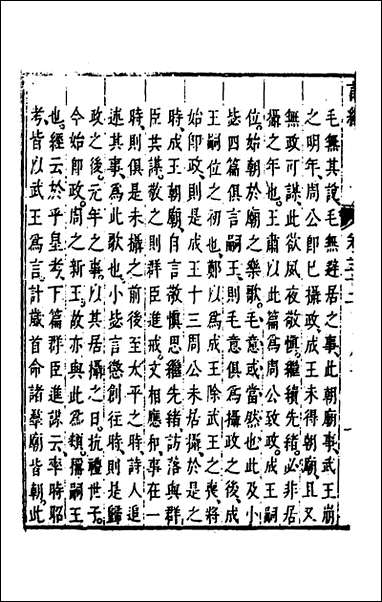 毛無其說毛無避居之事此朝廟事武王崩
之明年周公卽已攝政成王未得朝廟且又
無政可謀此欲夙夜敬慎繼續先緒必非居
攝之年也王肅以此篇為周公致政成王嗣
位始朝於廟之樂歌毛意或當然也此及小
毖四篇俱言嗣王則毛意俱為攝政之後成
王嗣位之初也鄭以為成王除武王之喪將
始卽政則是成王十三周公未居攝於是之
時成王朝廟自言敬慎思繼先緒訪落與群
臣共謀敬之則群臣進戒文相應和事在一
時則俱是未攝之前後至太平之時詩人追
述其事為此歌也小毖言懲創往時則是歸
政之後元年之事以其居攝之日抗禮世子
今始卽政周之新王故亦與此為類攝嗣王
也經云於乎皇考下篇群臣進謀云率時昭
考皆以武王為言計歲首命諸群廟皆朝此